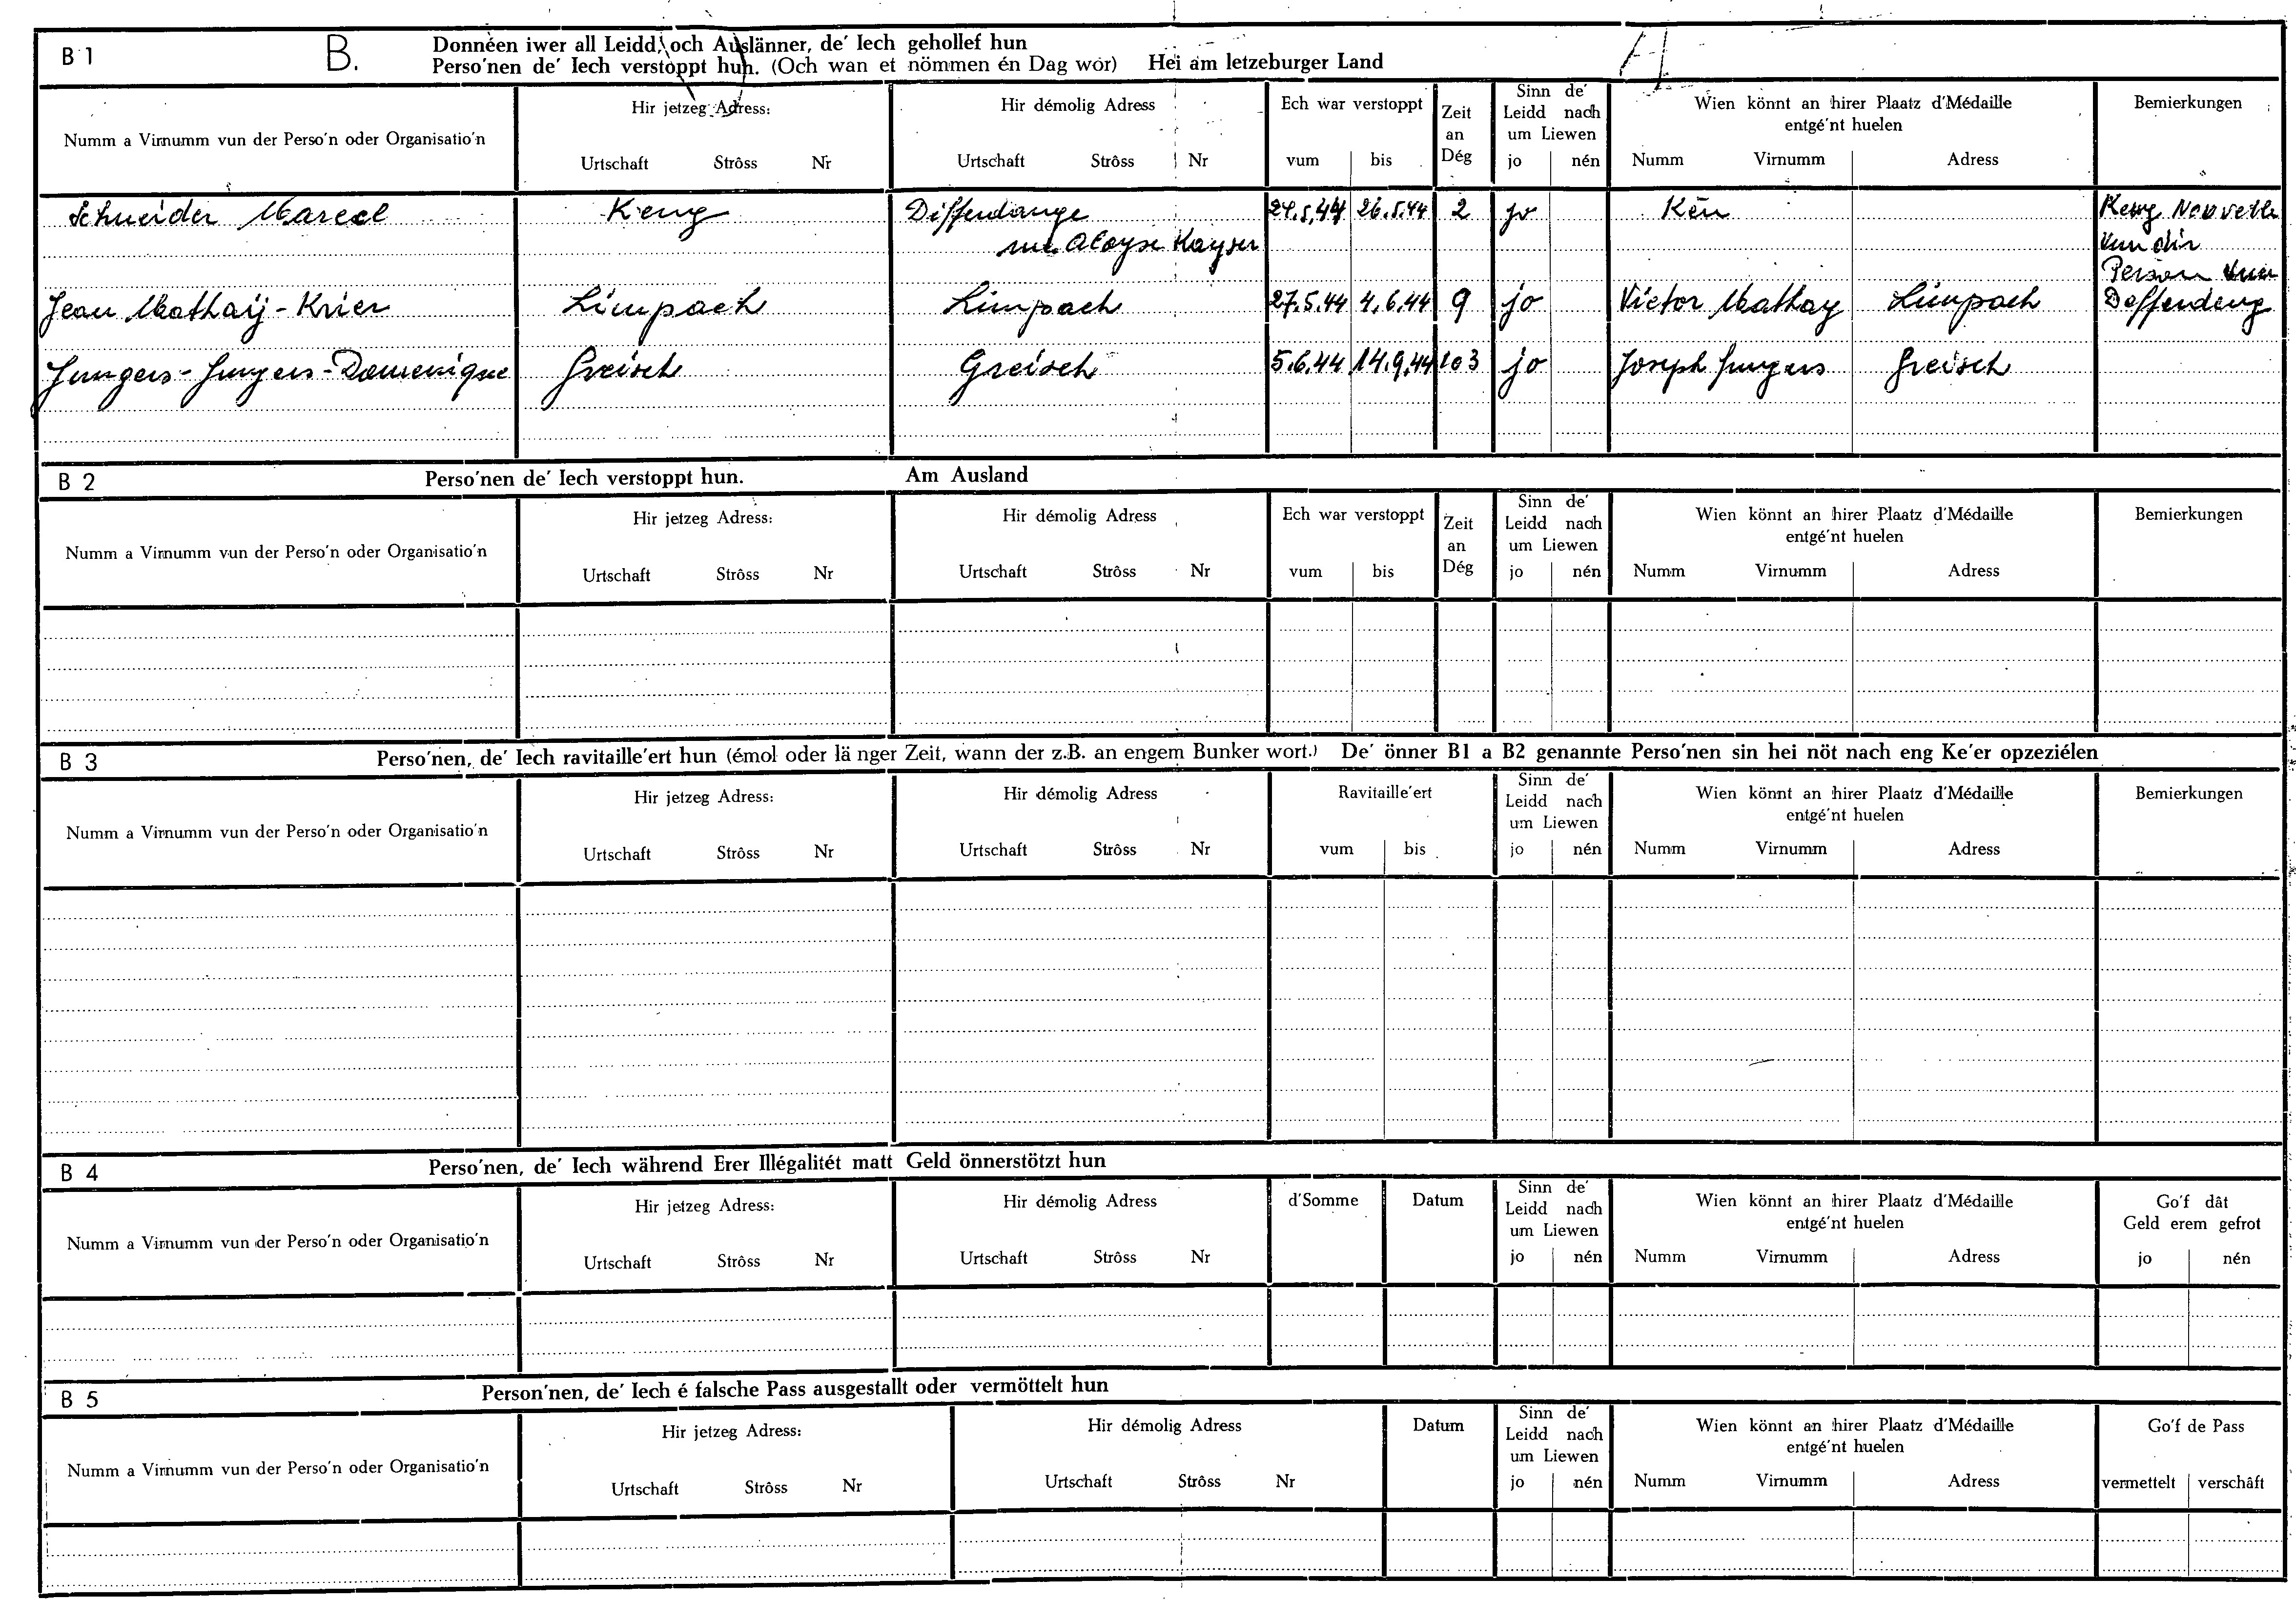 B 1 B. Donnéen iwer all Leidd, och Auslänner, de' Iech gehollef hun
Perso'nen de' Iech verstoppt hun. (Och wan et nömmen én Dag wor) Hei am letzeburger Land
Numm a Virnumm vun der Perso'n oder Organisatio'n Hir jetzeg Adress: Urtschaft Strôss Nr Hir démolig Adress Urtschaft Strôss Nr Ech war verstoppt vum bis Zeit an Dég Sinn de' Leidd nach um Liewen jo nén Wien könnt an hirer Plaatz d'Médaille entgé'nt huelen Numm Virnumm Adress Bemierkungen
Schneider Marcel Keng Differdange 26.5.44 2 jo Kén Keng
rue Aloyse Kayser vun dir
Person vun
Jean Mathaÿ-Krier Limpach Limpach 27.5.44 4.6.44 9 jo Victor Mathay Limpach Defferdeng
Jungers-Jungers-Domenique Greisch Greisch 5.6.44 14.9.44 103 jo Joseph Jungers Greisch
B 2 Perso'nen de' Iech verstoppt hun. Am Ausland
Numm a Virnumm vun der Perso'n oder Organisatio'n Hir jetzeg Adress: Urtschaft Strôss Nr Hir démolig Adress Urtschaft Strôss Nr Ech war verstoppt vum bis Zeit an Dég Sinn de' Leidd nach um Liewen jo nén Wien könnt an hirer Plaatz d'Médaille entgé'nt huelen Numm Virnumm Adress Bemierkungen
B 3 Perso'nen, de' Iech ravitaille'ert hun (émol oder lä nger Zeit, wann der z.B. an engem Bunker wort.) De' önner B1 a B2 genannte Perso'nen sin hei nöt nach eng Ke'er opzeziélen
Numm a Virnumm vun der Perso'n oder Organisatio'n Hir jetzeg Adress: Urtschaft Strôss Nr Hir démolig Adress Urtschaft Strôss Nr Ravitaille'ert vum bis Sinn de' Leidd nach um Liewen jo nén Wien könnt an hirer Plaatz d'Médaille entgé'nt huelen Numm Virnumm Adress Bemierkungen
B 4 Perso'nen, de' Iech während Erer Illégalitét matt Geld önnerstötzt hun
Numm a Virnumm vun der Perso'n oder Organisatio'n Hir jetzeg Adress: Urtschaft Strôss Nr Hir démolig Adress Urtschaft Strôss Nr d'Somme Datum Sinn de' Leidd nach um Liewen jo nén Wien könnt an hirer Plaatz d'Médaille entgé'nt huelen Numm Virnumm Adress Go'f dât Geld erem gefrot jo nén
B 5 Person'nen, de' Iech é falsche Pass ausgestallt oder vermöttelt hun
Numm a Virnumm vun der Perso'n oder Organisatio'n Hir jetzeg Adress: Urtschaft Strôss Nr Hir démolig Adress Urtschaft Strôss Nr Datum Sinn de' Leidd nach um Liewen jo nén Wien könnt an hirer Plaatz d'Médaille entgé'nt huelen Numm Virnumm Adress Go'f de Pass vermettelt verschâft